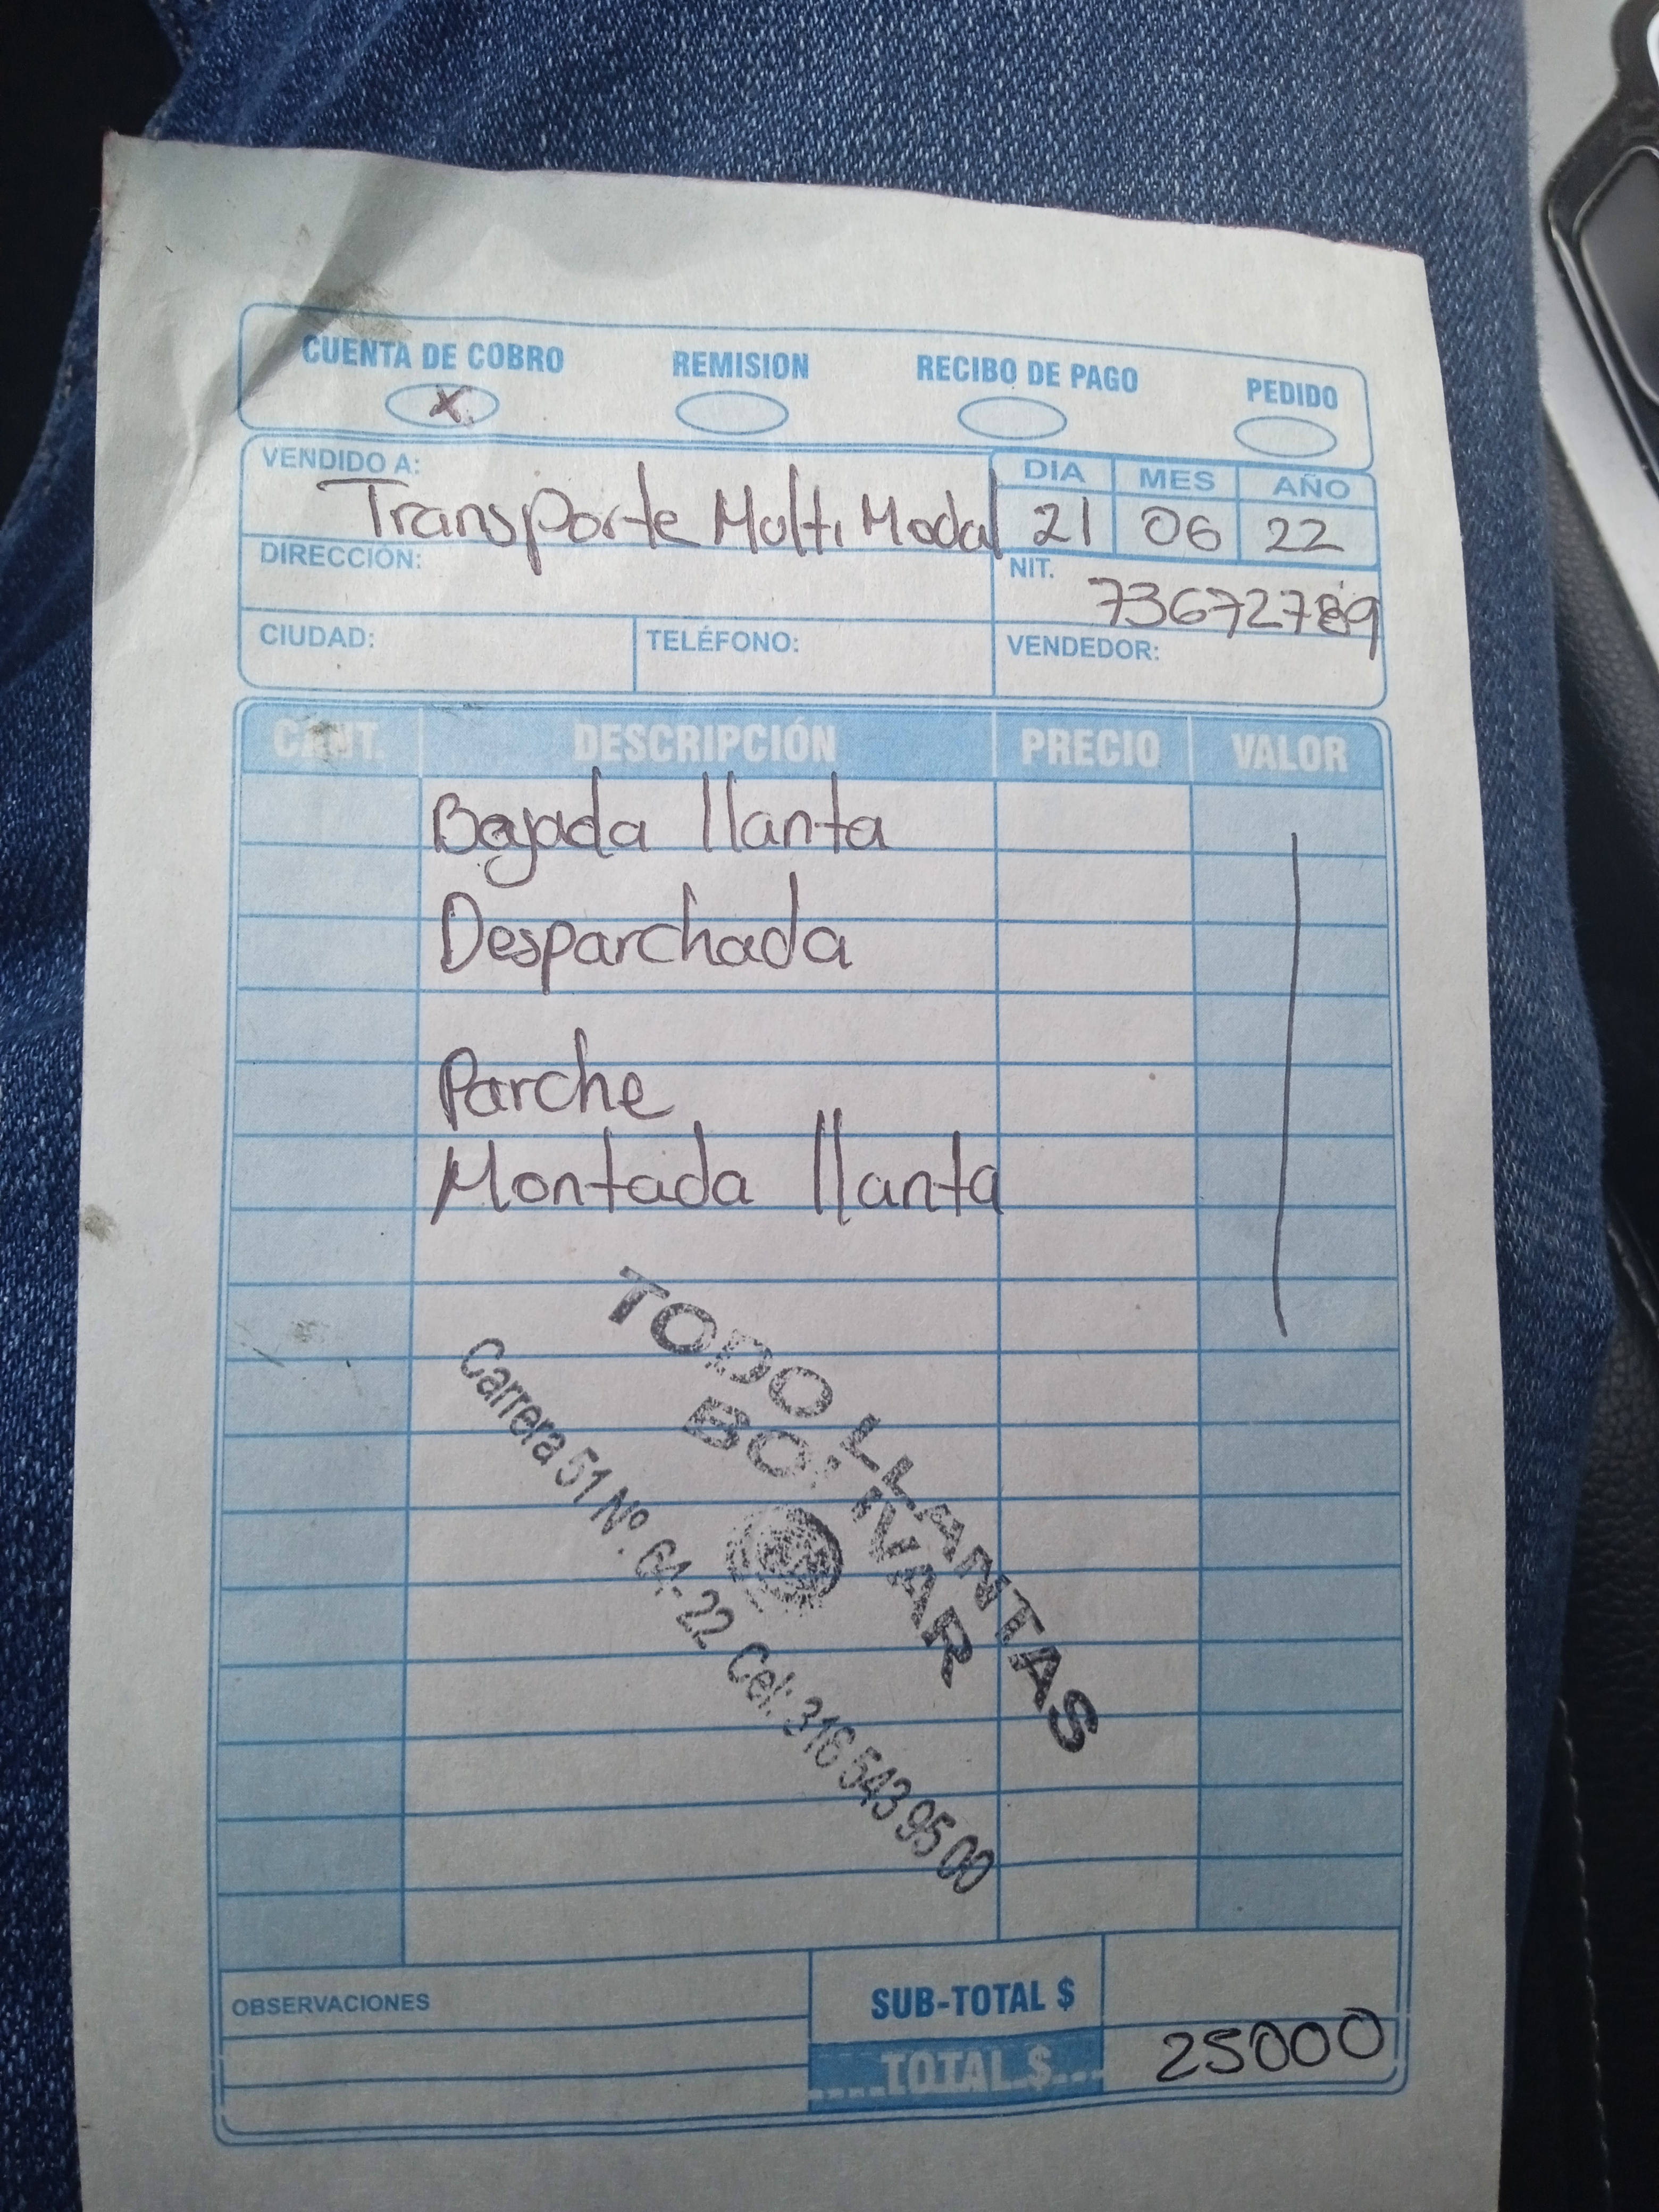 CUENTA DE COBRO REMISION RECIBO DE PAGO PEDIDO
X
VENDIDO A: Transporte Multi Modal
DIA MES AÑO
21 06 22
DIRECCIÓN:
NIT. 73672789
CIUDAD: TELÉFONO: VENDEDOR:
CANT. DESCRIPCIÓN PRECIO VALOR
Bajada llanta
Desparchada
Parche
Montada llanta
TODO LLANTAS
BOLIVAR
Carrera 51 Nº. 64-22 Cel: 316 543 95 00
OBSERVACIONES
SUB-TOTAL $
TOTAL $ 25000